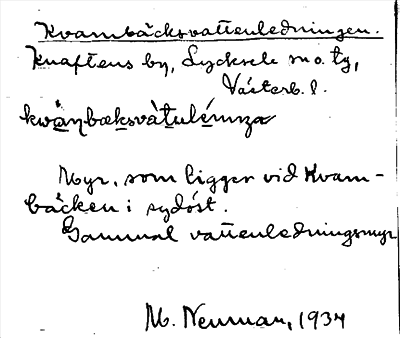 Kvambäcksvattenledningen.
Knaftens by, Lycksele sn o. tg,
Västerb. l.
Myr, som ligger vid Kvam-
bäcken i sydöst.
Gammal vattenledningsmyr
M. Neuman, 1934